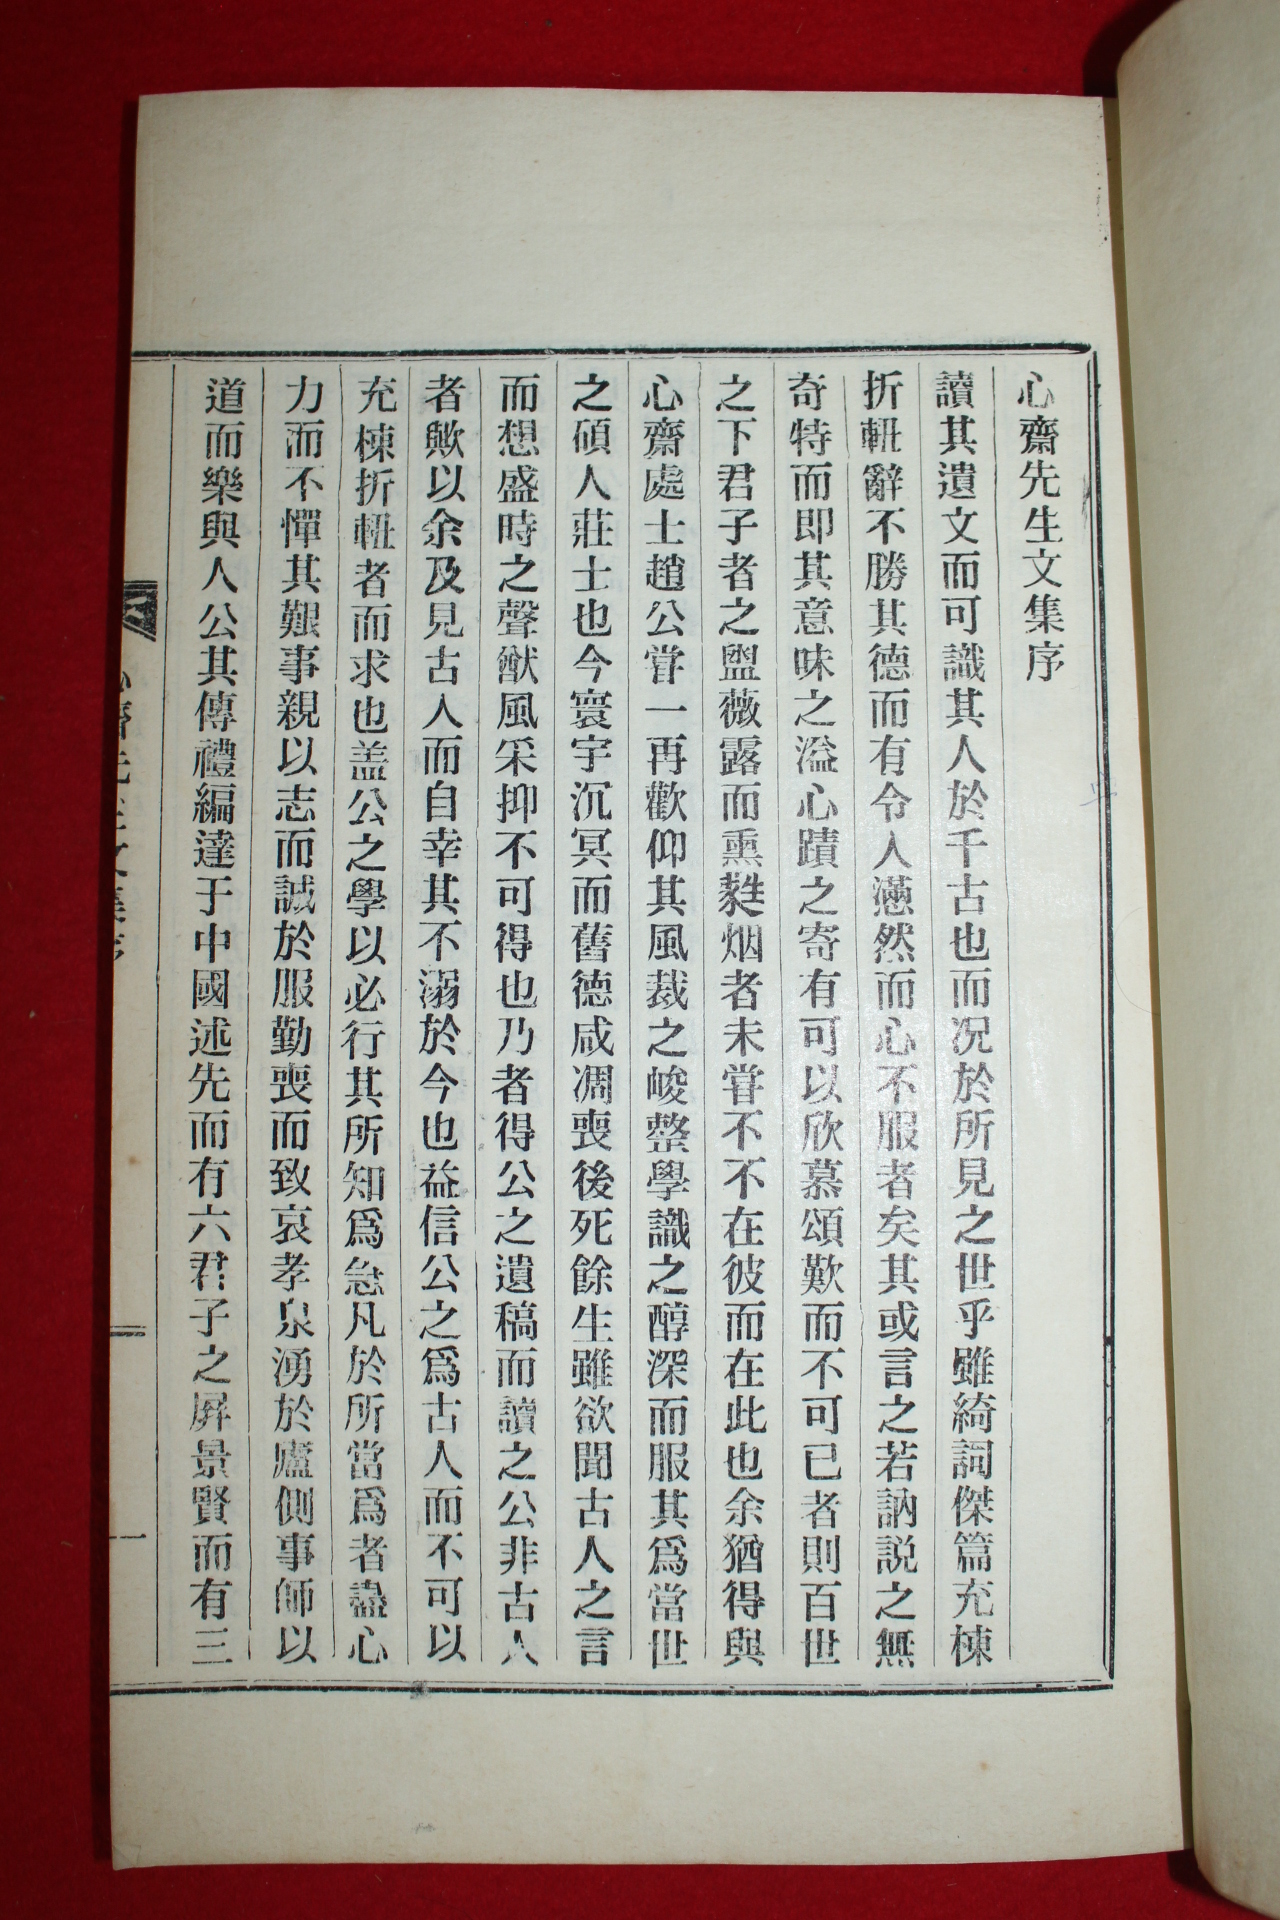 心齋先生文集序
讀其遺文而可識其人於千古也而况於所見之世乎雖綺詞傑篇充棟
折軸辭不勝其德而有令人懣然而心不服者矣其或言之若訥説之無
奇特而即其意味之溢心蹟之寄有可以欣慕頌歎而不可已者則百世
之下君子者之盥薇露而熏爇烟者未甞不不在彼而在此也余猶得與
心齋處士趙公甞一再歡仰其風裁之峻整學識之醇深而服其爲當世
之碩人莊士也今寰宇沉冥而舊德咸凋喪後死餘生雖欲聞古人之言
而想盛時之聲猷風采抑不可得也乃者得公之遺稿而讀之公非古人
者歟以余及見古人而自幸其不溺於今也益信公之爲古人而不可以
充棟折軸者而求也盖公之學以必行其所知爲急凡於所當爲者盡心
力而不憚其艱事親以志而誠於服勤喪而致哀孝泉湧於廬側事師以
道而樂與人公其傳禮編達于中國述先而有六君子之屛景賢而有三
心齋先生文集序
一